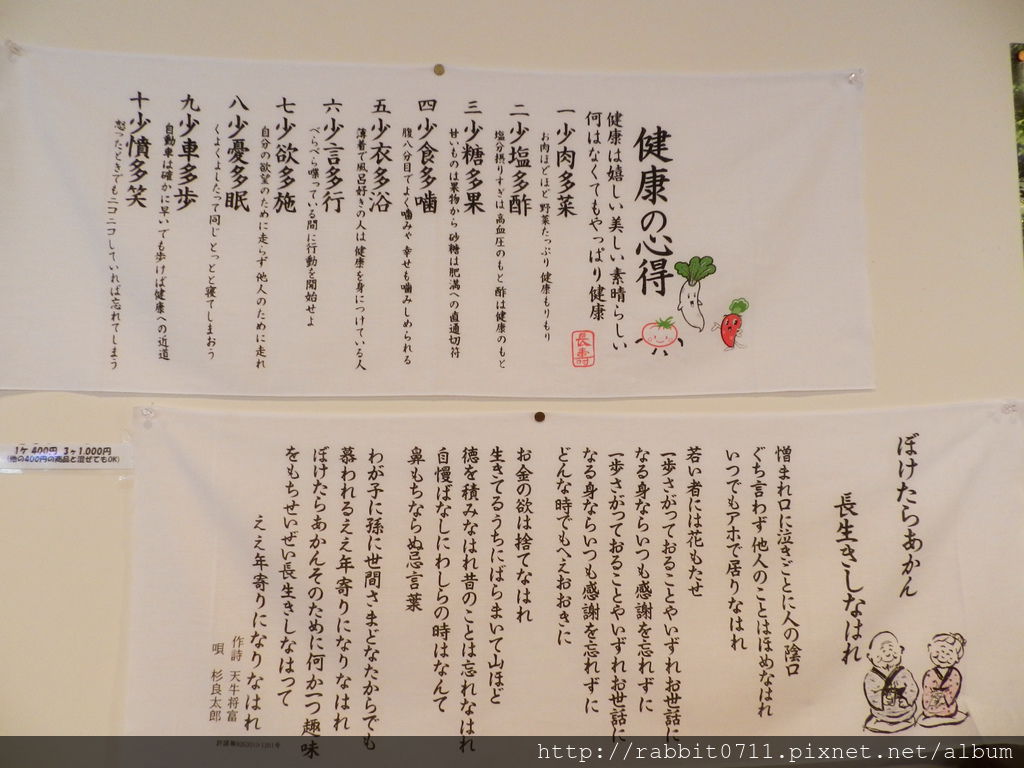 健康の心得
健康は嬉しい美しい素晴らしい
何はなくてもやっぱり健康
長寿
一 少肉多菜
お肉ほどほど野菜たっぷり健康もりもり
二 少塩多酢
塩分摂りすぎは高血圧のもと酢は健康のもと
三 少糖多果
甘いものは果物から砂糖は肥満への直通切符
四 少食多噛
腹八分目でよく噛みや幸せも噛みしめられる
五 少衣多浴
薄着で風呂好きの人は健康を身につけている人
六 少言多行
べらべら喋っている間に行動を開始せよ
七 少欲多施
自分の欲望のために走らず他人のために走れ
八 少憂多眠
くよくよしたって同じとっとと寝てしまおう
九 少車多歩
自動車は確かに早いでも歩けば健康への近道
十 少憤多笑
怒ったときでもニコニコしていれば忘れてしまう
1ケ 400円 3ヶ1,000円
(他の400円の商品と混ぜてもOK)
ぼけたらあかん
長生きしなはれ
憎まれ口に泣きごとに人の陰口
ぐち言わず他人のことはほめなはれ
いつでもアホで居りなはれ
若い者には花もたせ
一歩さがっておることやいずれお世話に
なる身ならいつも感謝を忘れずに
一歩さがっておることやいずれお世話に
なる身ならいつも感謝を忘れずに
どんな時でもへえおおきに
お金の欲は捨てなはれ
生きてるうちにばらまいて山ほど
徳を積みなはれ昔のことは忘れなはれ
自慢ばなしにわしらの時はなんて
鼻もちならぬ忌言葉
わが子に孫に世間さまどなたからでも
慕われるええ年寄りになりなはれ
ぼけたらあかんそのために何か一つ趣味
をもちせいぜい長生きしなはって
ええ年寄りになりなはれ
作詩 天牛将富
唄 杉良太郎
http://rabbit0711.pixnet.net/album